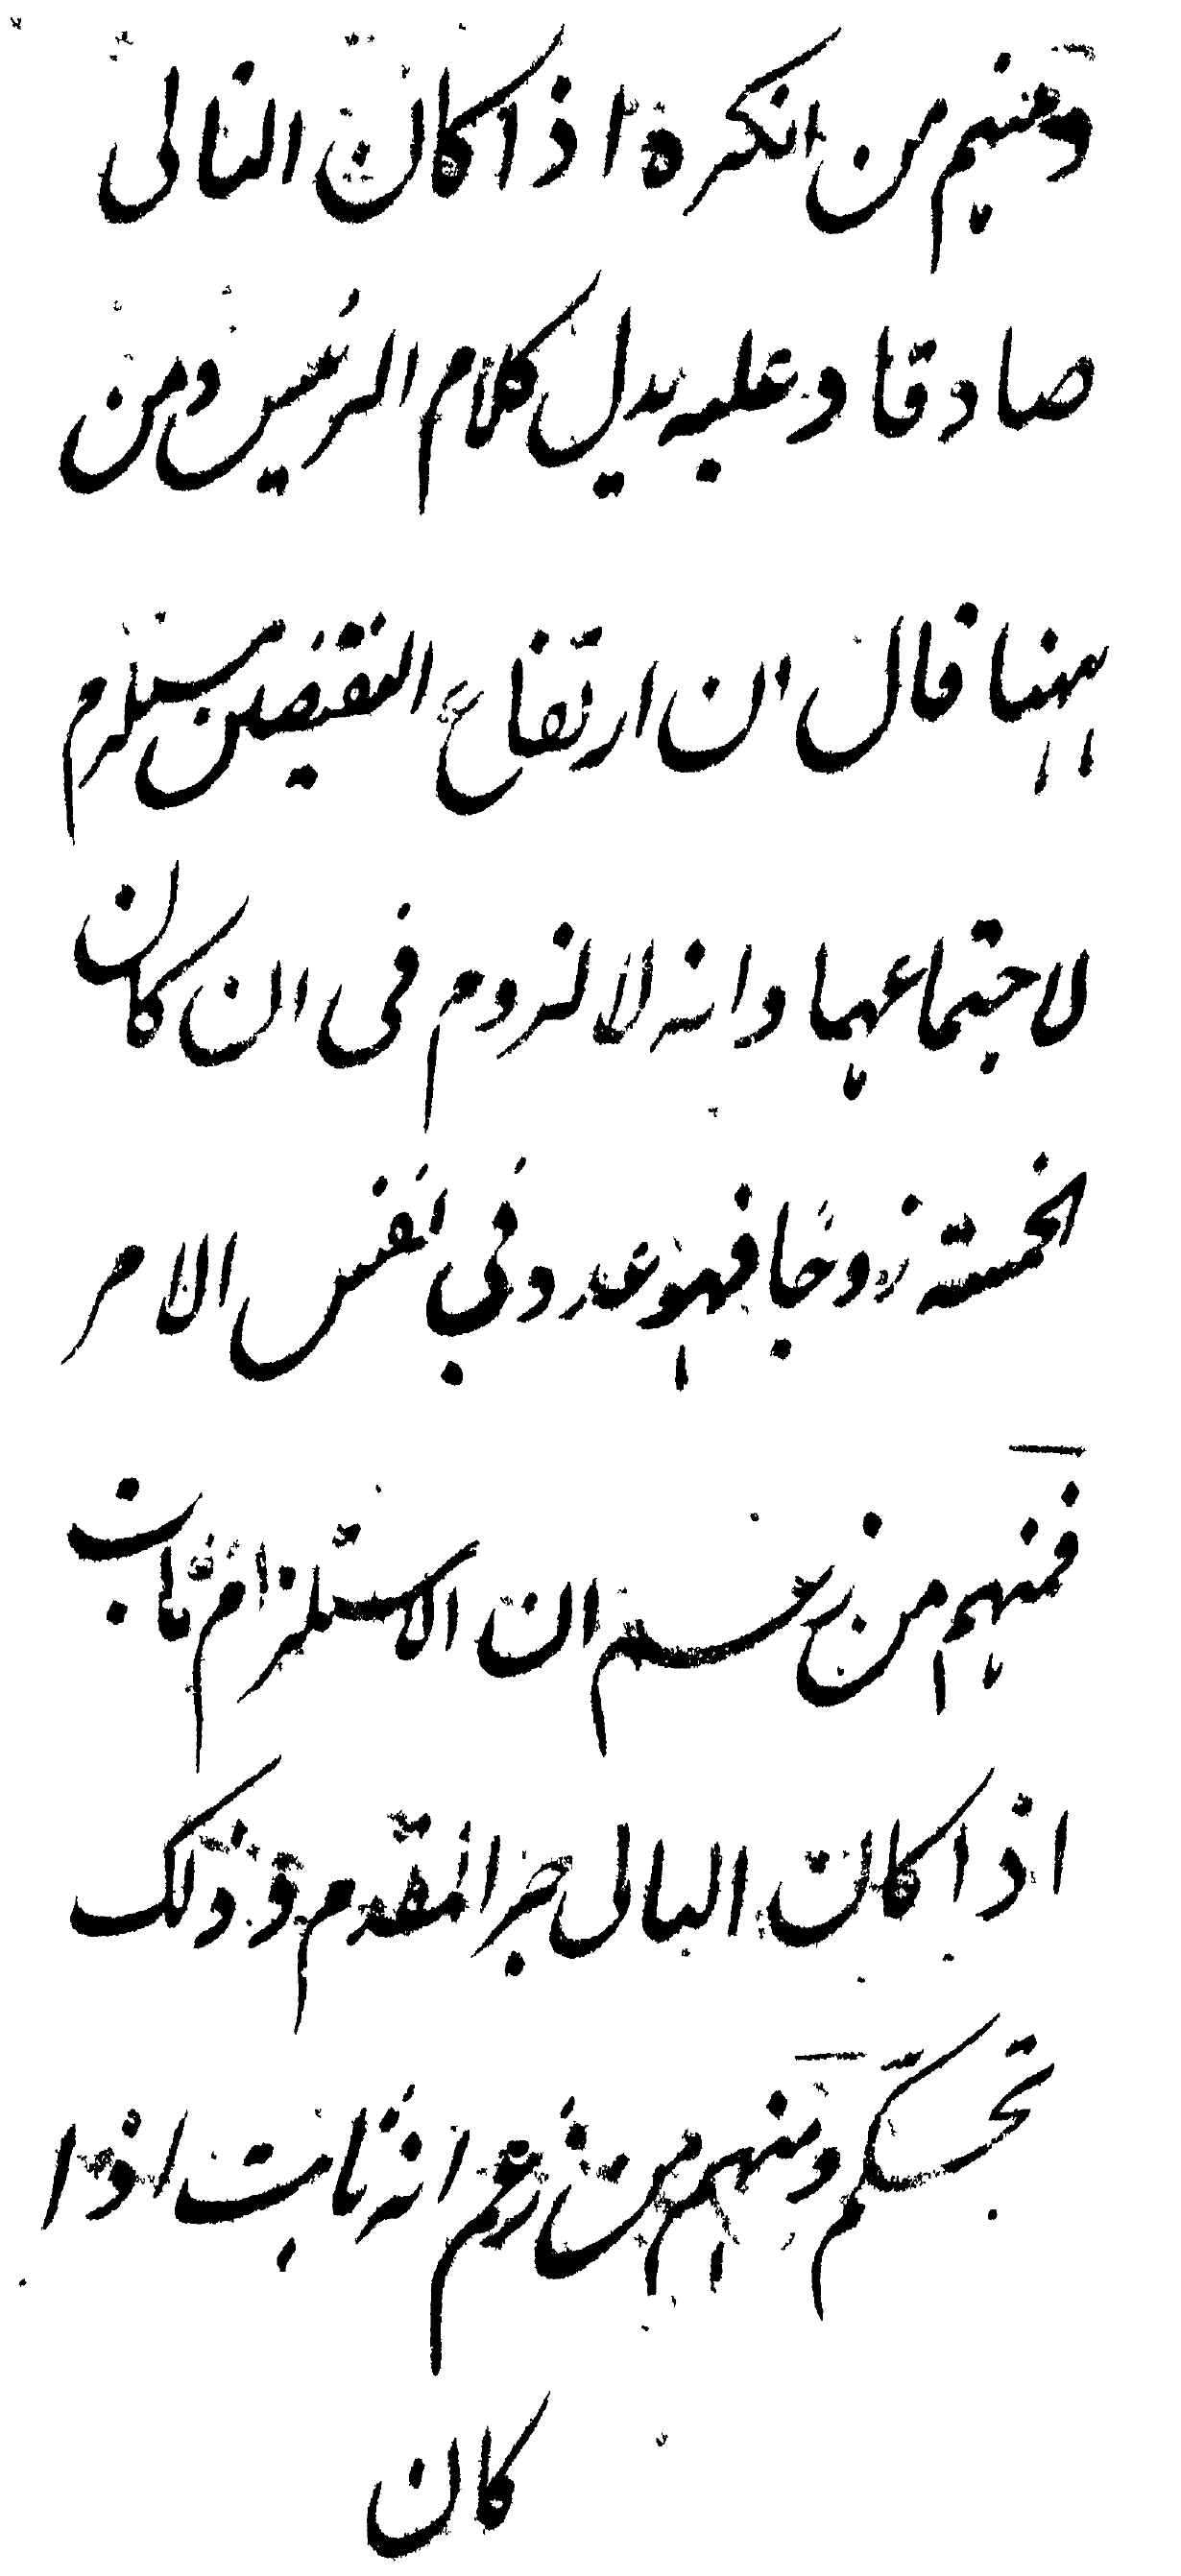 ومنهم من انكره اذا كان التالى
صادقا وعليه يدل كلام الرئيس ومن
ههنا قال ان ارتفاع النقيضين مستلزم
لاجتماعهما وانه لا لزوم فى ان كان
الخمسة زوجًا فهو عدد وفي نفس الامر
فمنهم من زعم ان الاستلزام ثابت
اذا كان التالى جزء المقدم وذلك
تحكم ومنهم من زعم انه ثابت اذا
كان